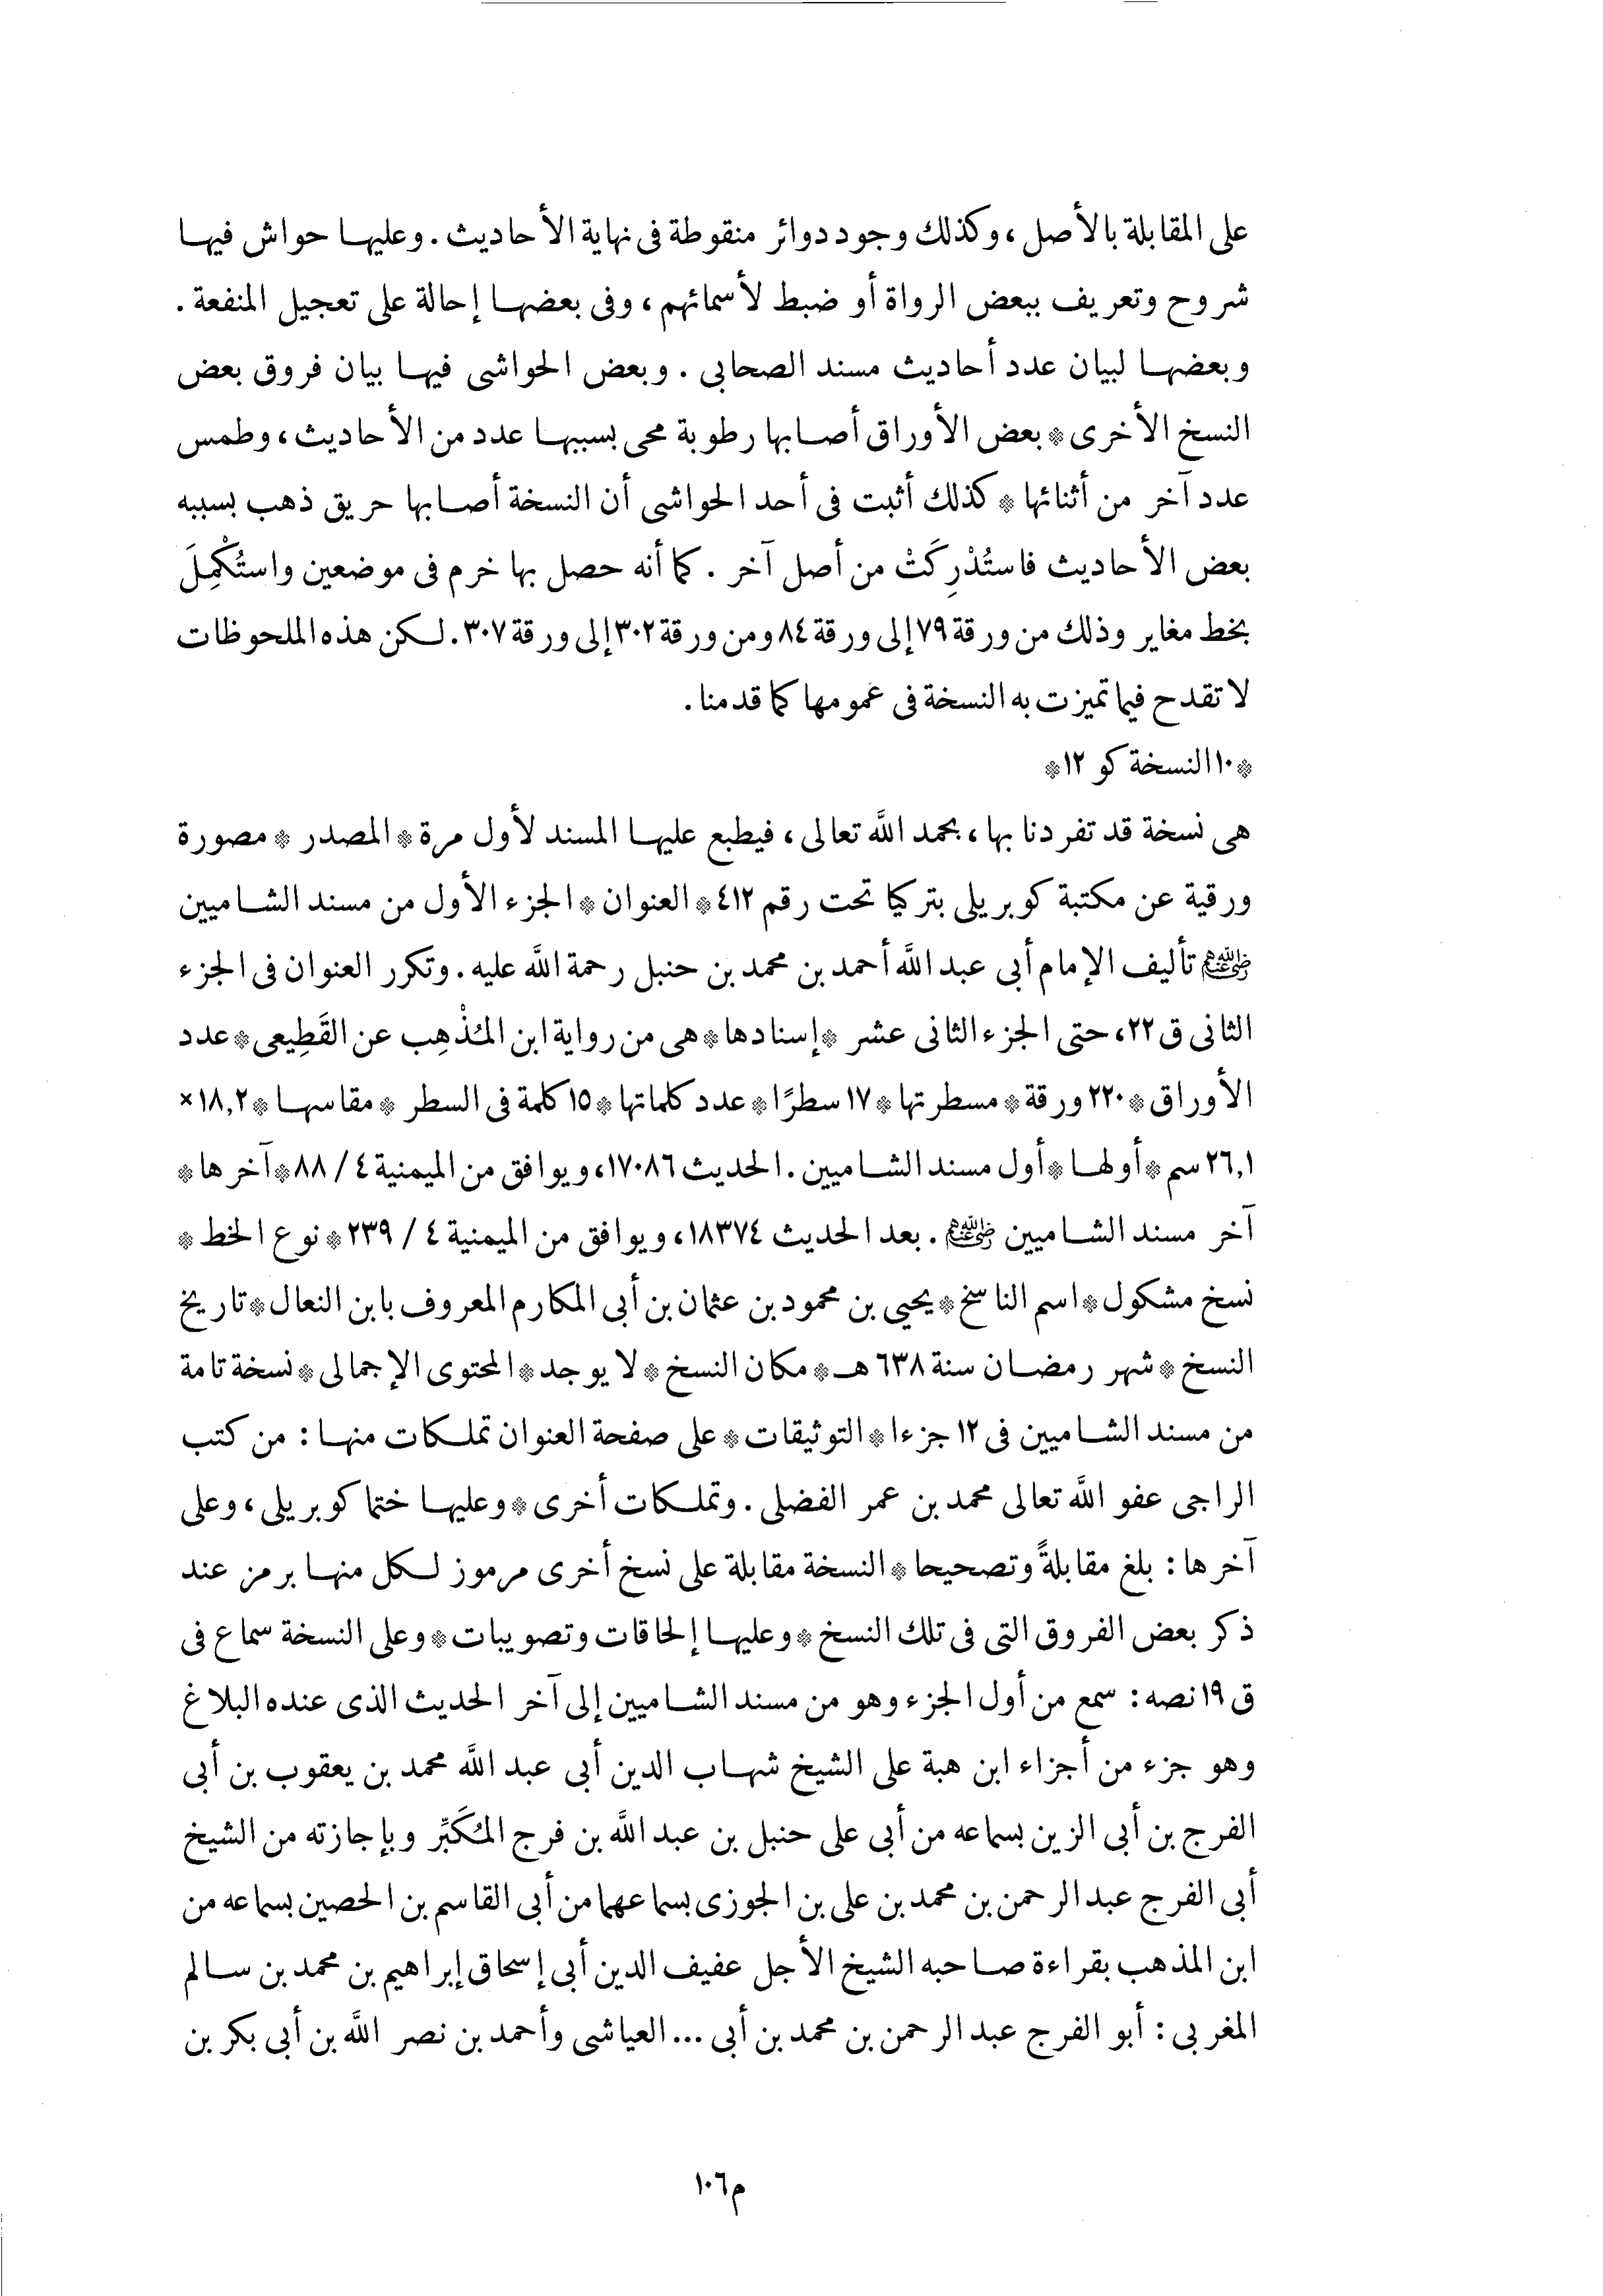 على المقابلة بالأصل، وكذلك وجود دوائر منقوطة فى نهاية الأحاديث. وعليها حواش فيها
شروح وتعريف ببعض الرواة أو ضبط لأسمائهم، وفى بعضها إحالة على تعجيل المنفعة.
وبعضها لبيان عدد أحاديث مسند الصحابى. وبعض الحواشى فيها بيان فروق بعض
النسخ الأخرى * بعض الأوراق أصابها رطوبة محى بسببها عدد من الأحاديث، وطمس
عدد آخر من أثنائها * كذلك أثبت فى أحد الحواشى أن النسخة أصابها حريق ذهب بسببه
بعض الأحاديث فاستُدْرِكَتْ من أصل آخر. كما أنه حصل بها خرم فى موضعين واستُكْمِلَ
بخط مغاير وذلك من ورقة ٧٩ إلى ورقة ٨٤ ومن ورقة ٣٠٢ إلى ورقة ٣٠٧. لكن هذه الملحوظات
لا تقدح فيما تميزت به النسخة فى عمومها كما قدمنا.
* ١٠ النسخة كو ١٢ *
هى نسخة قد تفردنا بها، بحمد اللَّه تعالى، فيطبع عليها المسند لأول مرة * المصدر * مصورة
ورقية عن مكتبة كوبريلى بتركيا تحت رقم ٤١٢ * العنوان * الجزء الأول من مسند الشاميين
رضي الله عنهم تأليف الإمام أبى عبد اللَّه أحمد بن محمد بن حنبل رحمة اللَّه عليه. وتكرر العنوان فى الجزء
الثانى ق ٢٢، حتى الجزء الثانى عشر * إسنادها * هى من رواية ابن المُذْهِب عن القَطِيعى * عدد
الأوراق * ٢٢٠ ورقة * مسطرتها * ١٧ سطرًا * عدد كلماتها * ١٥ كلمة فى السطر * مقاسها * ١٨,٢ ×
٢٦,١ سم * أولها * أول مسند الشاميين. الحديث ١٧٠٨٦، ويوافق من الميمنية ٤ / ٨٨ * آخرها *
آخر مسند الشاميين رضي الله عنهم. بعد الحديث ١٨٣٧٤، ويوافق من الميمنية ٤ / ٢٣٩ * نوع الخط *
نسخ مشكول * اسم الناسخ * يحيى بن محمود بن عثمان بن أبى المكارم المعروف بابن النعال * تاريخ
النسخ * شهر رمضان سنة ٦٣٨ هـ * مكان النسخ * لا يوجد * المحتوى الإجمالى * نسخة تامة
من مسند الشاميين فى ١٢ جزءا * التوثيقات * على صفحة العنوان تملكات منها: من كتب
الراجى عفو اللَّه تعالى محمد بن عمر الفضلى. وتملكات أخرى * وعليها ختما كوبريلى، وعلى
آخرها: بلغ مقابلةً وتصحيحا * النسخة مقابلة على نسخ أخرى مرموز لكل منها برمز عند
ذكر بعض الفروق التى فى تلك النسخ * وعليها إلحاقات وتصويبات * وعلى النسخة سماع فى
ق ١٩ نصه: سمع من أول الجزء وهو من مسند الشاميين إلى آخر الحديث الذى عنده البلاغ
وهو جزء من أجزاء ابن هبة على الشيخ شهاب الدين أبى عبد اللَّه محمد بن يعقوب بن أبى
الفرج بن أبى الزين بسماعه من أبى على حنبل بن عبد اللَّه بن فرج المُكَبِّر وبإجازته من الشيخ
أبى الفرج عبد الرحمن بن محمد بن على بن الجوزى بسماعهما من أبى القاسم بن الحصين بسماعه من
ابن المذهب بقراءة صاحبه الشيخ الأجل عفيف الدين أبى إسحاق إبراهيم بن محمد بن سالم
المغربى: أبو الفرج عبد الرحمن بن محمد بن أبى ... العياشى وأحمد بن نصر اللَّه بن أبى بكر بن
م ١٠٦